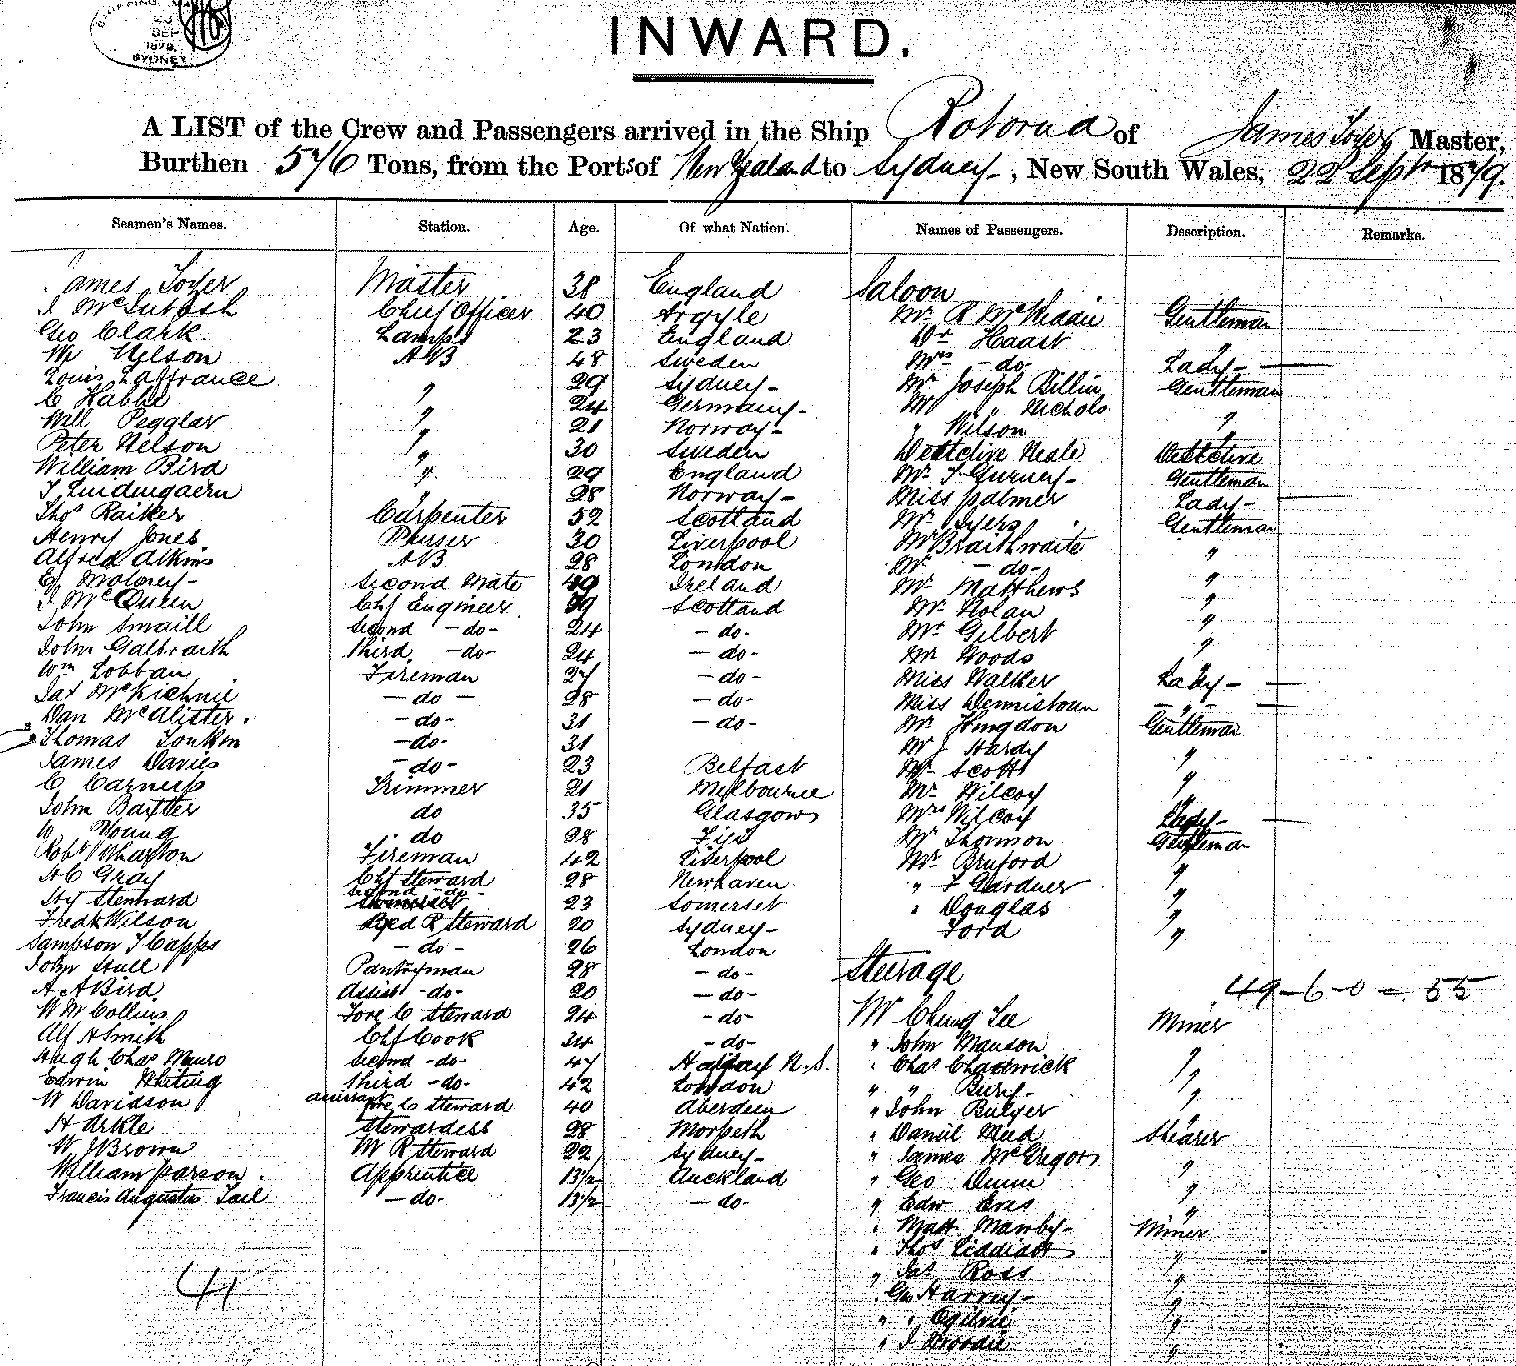 SHIPPING
SEP
1879
SYDNEY
INWARD.
A LIST of the Crew and Passengers arrived in the Ship Rotorua of James Toyer Master,
Burthen 576 Tons, from the Ports of New Zealand to Sydney, New South Wales, 22 Septr 1879.
Seamen's Names. Station. Age. Of what Nation. Names of Passengers. Description. Remarks.
James Toyer Master 38 England Saloon
J McIntosh Chief Officer 40 Argyle Mr R McKiddie Gentleman
Geo Clark Lamps 23 England Dr Haast "
Wm Nelson AB 48 Sweden Mrs -do- Lady -
Louis Laffrance " 29 Sydney Mr Joseph Billin Gentleman
C Habbe " 24 Germany Mr " Nichols "
Will Pegglar " 21 Norway " Wilson "
Peter Nelson " 30 Sweden Detective Neale Detective
William Bird " 29 England Mr T Gurney Gentleman
" 28 Norway Miss Palmer Lady -
Thos Raiker Carpenter 52 Scotland Mr Syers Gentleman
Henry Jones Purser 30 Liverpool Mr Braithwaite "
Alfred Atkins AB 28 London Mr -do- "
E Moloney Second Mate 49 Ireland Mr Matthews "
J McQueen Chf Engineer 39 Scotland Mr Nolan "
John Smaill Second -do- 24 -do- Mr Gilbert "
John Galbraith Third -do- 24 -do- Mr Woods "
Wm Lobban Fireman 27 -do- Miss Walker Lady -
Jas McKichnie -do- 28 -do- Miss Dennistoun - " -
Dan McAlister -do- 31 -do- Mr Hingdon Gentleman
Thomas Tonkin -do- 31 Mr J Hardy "
James Davies -do- 23 Belfast Mr Scott "
C Carness Trimmer 21 Melbourne Mr Wilcox "
John Bartter do 35 Glasgow Mrs Wilcox Lady -
W Young do 28 Fiji Mr Thomson Gentleman
Robt Wharton Fireman 42 Liverpool Mr Bruford "
A C Gray Chf Steward 28 Newhaven " F Gardner "
Hy Stennard Second -do- 23 Somerset " Douglas "
Fredk Wilson Bed R Steward 20 Sydney Ford "
Sampson T Capps -do- 26 London
John Hull Pantryman 28 -do- Steerage
A A Bird Assist -do- 20 -do- 49-6-0 = 55
W M Collins Fore C Steward 24 -do- Mr Chung Lee Miner
Alf H Smith Chf Cook 34 -do- " John Manson "
Hugh Chas Munro Second -do- 47 Halifax N.S. " Chas Chadwick "
Edwin Whiting Third -do- 42 London " " Bury "
W Davidson assistant Fore C Steward 40 Aberdeen " John Bulger "
H Arkle Stewardess 28 Morpeth " Daniel Mead Shearer
W J Brown M R Steward 22 Sydney " James McGregor "
William Parson Apprentice 13½ Auckland " Geo Dunn "
Francis Augustus Tail -do- 13½ -do- " Edw Eras "
" Matt Mawby Miner
" Thos "
41 " Jas Ross "
" Geo Harvey "
" " Ogilvie "
" J Woodie "